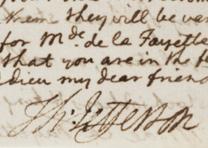 them they will be ver
for Mde. de la Fayette
that you are in the
adieu my dear friend
Th: Jefferson